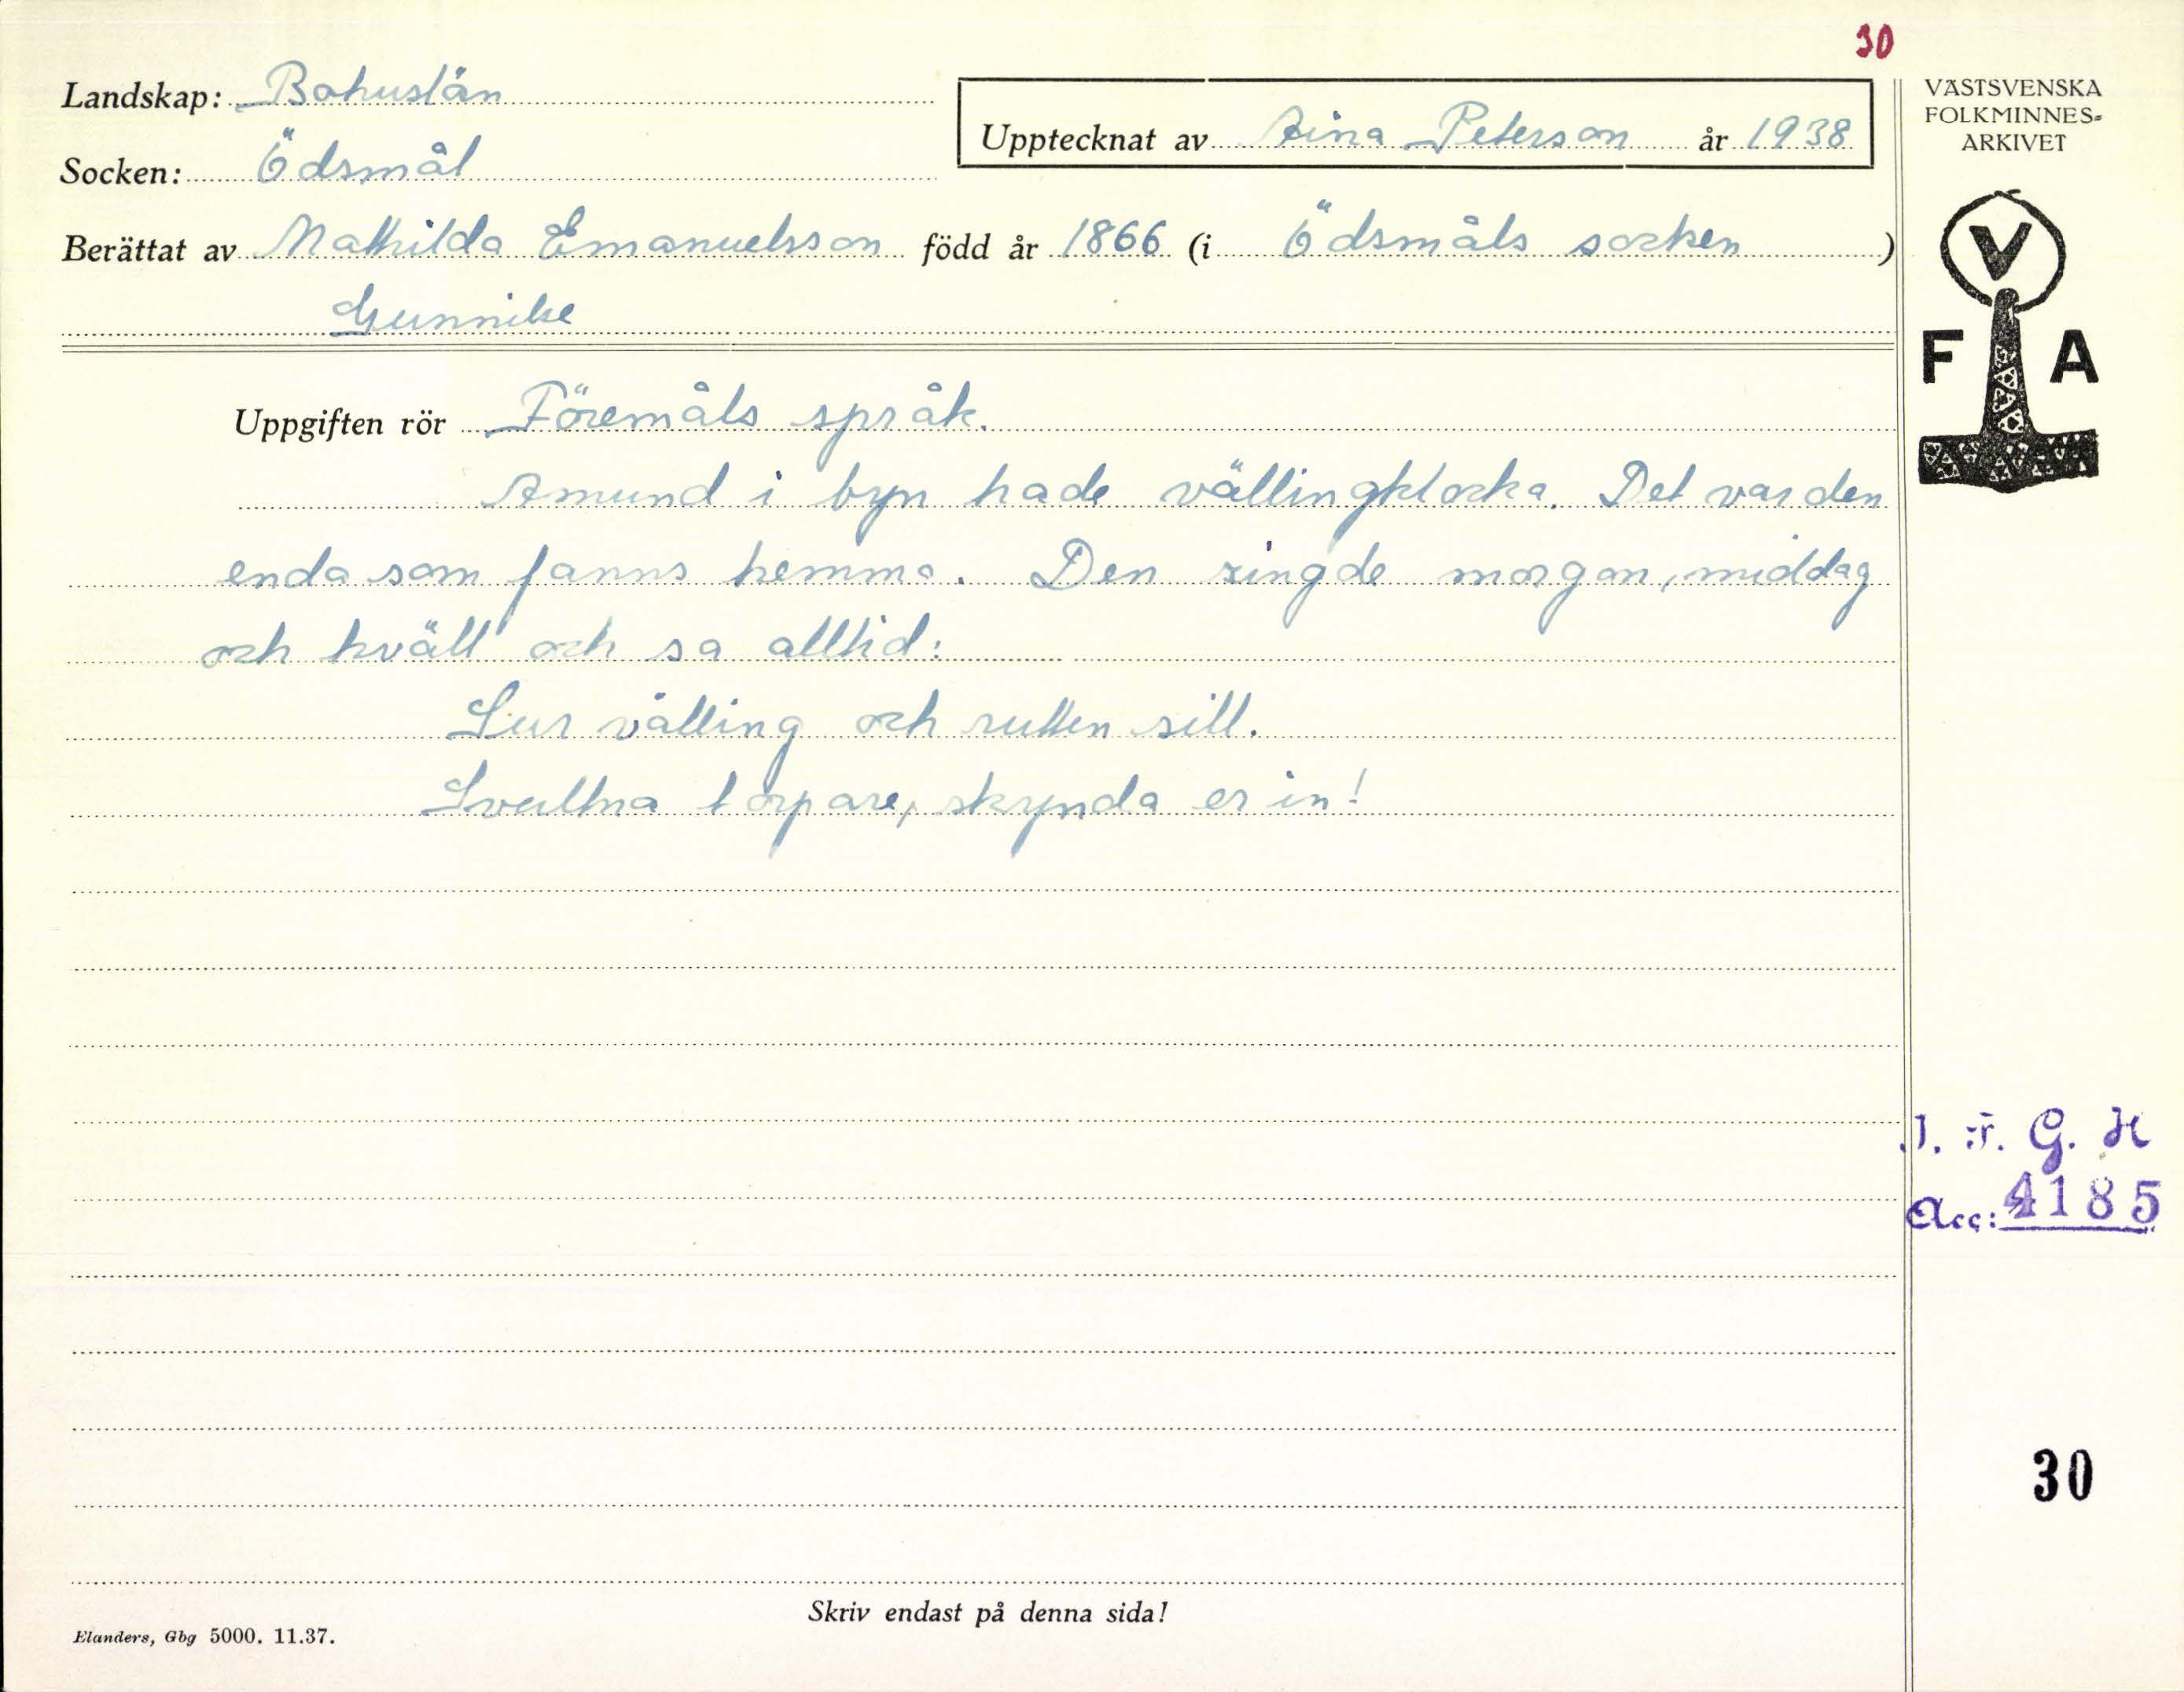 30
Landskap: Bohuslän
Upptecknat av Aina Peterson år 1938
Socken: Ödsmål
Berättat av Mathilda Emanuelsson född år 1866 (i Ödsmåls socken)
Gunnibe
VÄSTSVENSKA
FOLKMINNES-
ARKIVET
V
F A
Uppgiften rör Föremåls språk.
Amund i byn hade vällingklocka. Det var den
enda som fanns hemma. Den ringde morgon, middag
och kväll och sa alltid:
Sur välling och rutten sill.
Svultna torpare, skynda er in!
I. F. G. H
Acc: 4185
30
Skriv endast på denna sida!
Elanders, Gbg 5000. 11.37.